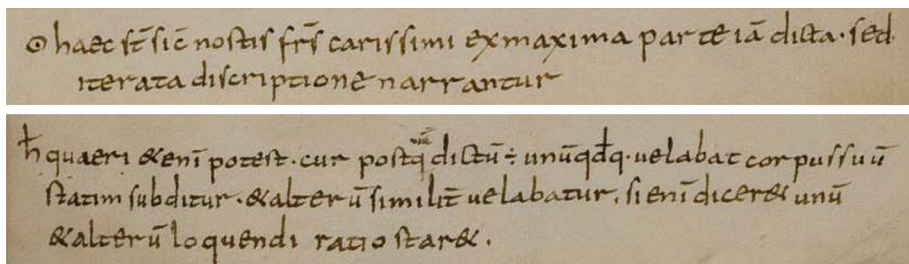 ⊙ haec st̄ sic̄ nostis fr̄s carissimi ex maxima parte iā dicta· sed·
iterata discriptione narrantur
ħ quaeri &enī potest· cur postq̄ dictū ÷ unūqđq· uelabat corpus suū
statim subditur· & alterū similit̄ uelabatur, si enī dicer& unū
& alterū loquendi ratio star&.